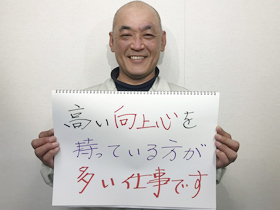 高い向上心を
持っている方が
多い仕事です